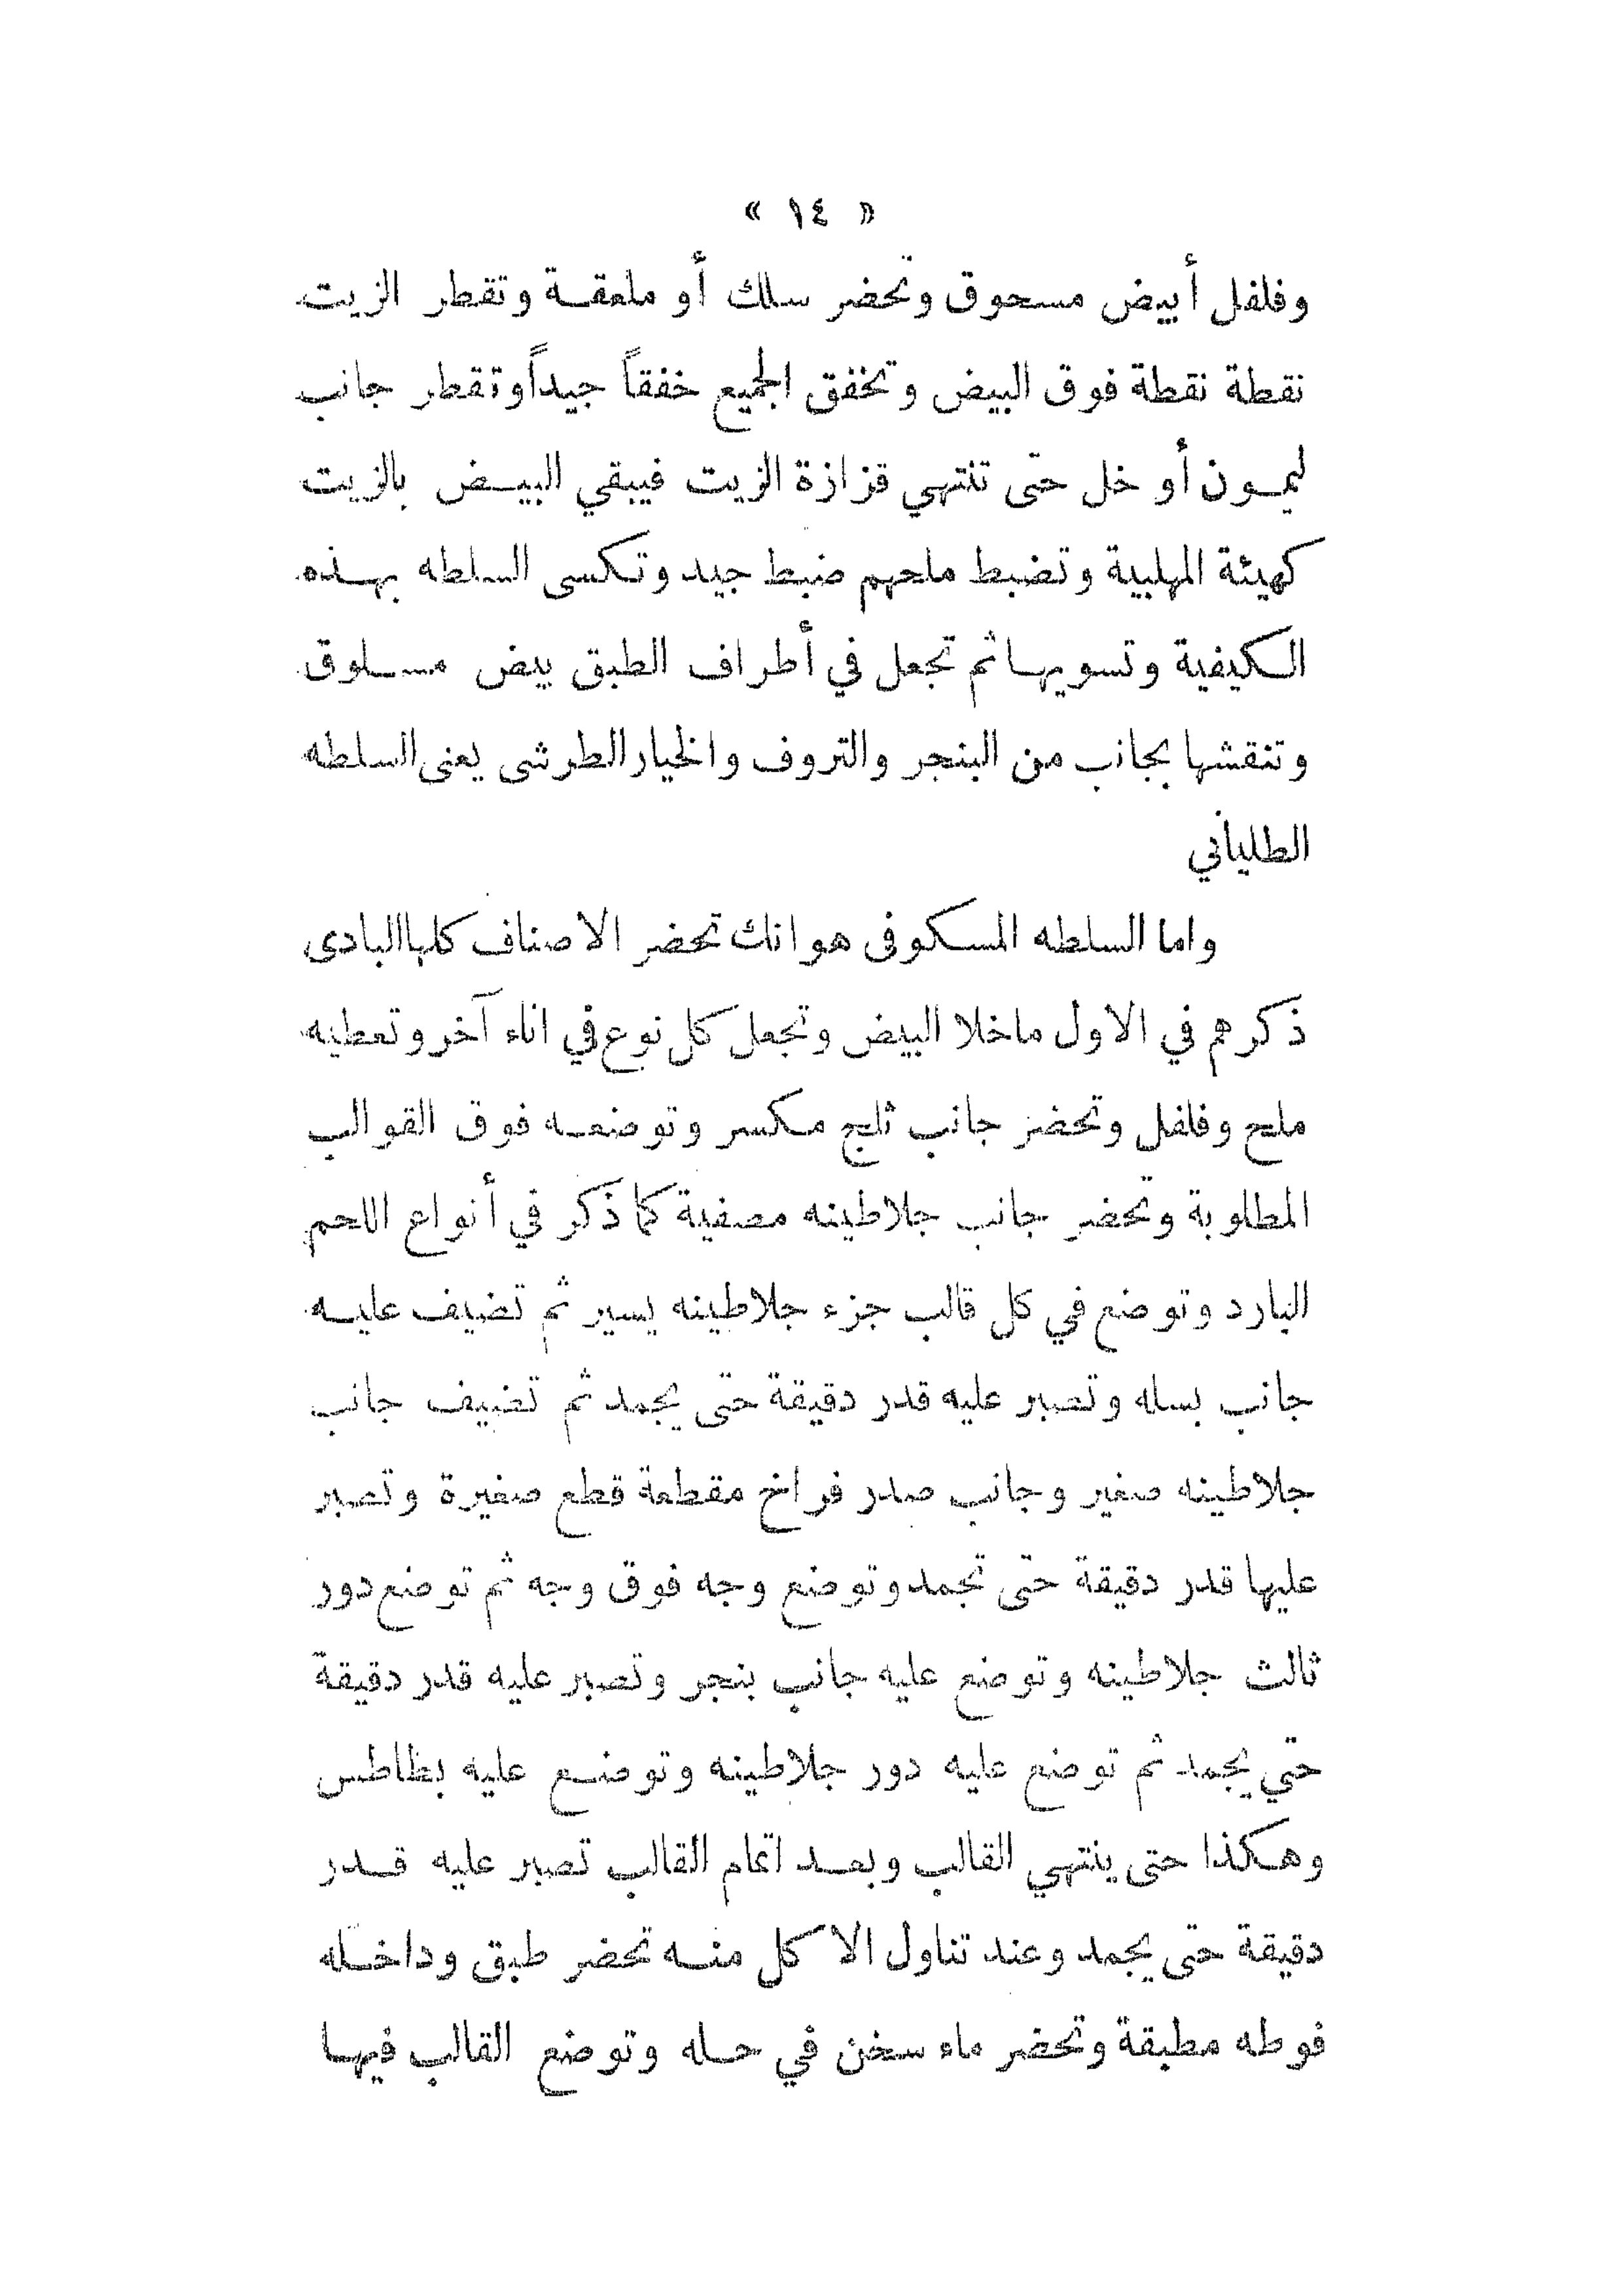 « ١٤ »
وفلفل أبيض مسحوق وتحضر سلك أو ملعقة وتقطر الزيت
نقطة نقطة فوق البيض وتخفق الجميع خفقاً جيداً وتقطر جانب
ليمون أو خل حتى تنتهي قزازة الزيت فيبقي البيض بالزيت
كهيئة المهلبية وتضبط ملحهم ضبط جيد وتكسى السلطه بهذه
الكيفية وتسويها ثم تجعل في أطراف الطبق بيض مسلوق
وتنقشها بجانب من البنجر والتروف والخيار الطرشى يعنى السلطه
الطلياني
واما السلطه المسكوفى هو انك تحضر الاصناف كلها البادى
ذكرهم في الاول ماخلا البيض وتجعل كل نوع في اناء آخر وتعطيه
ملح وفلفل وتحضر جانب ثلج مكسر وتوضعه فوق القوالب
المطلوبة وتحضر جانب جلاطينه مصفية كما ذكر في أنواع اللحم
البارد وتوضع في كل قالب جزء جلاطينه يسير ثم تضيف عليه
جانب بسله وتصبر عليه قدر دقيقة حتى يجمد ثم تضيف جانب
جلاطينه صغير وجانب صدر فراخ مقطعة قطع صغيرة وتصبر
عليها قدر دقيقة حتى تجمد وتوضع وجه فوق وجه ثم توضع دور
ثالث جلاطينه وتوضع عليه جانب بنجر وتصبر عليه قدر دقيقة
حتي يجمد ثم توضع عليه دور جلاطينه وتوضع عليه بطاطس
وهكذا حتى ينتهي القالب وبعد اتمام القالب تصبر عليه قدر
دقيقة حتى يجمد وعند تناول الاكل منه تحضر طبق وداخله
فوطه مطبقة وتحضر ماء سخن في حله وتوضع القالب فيها